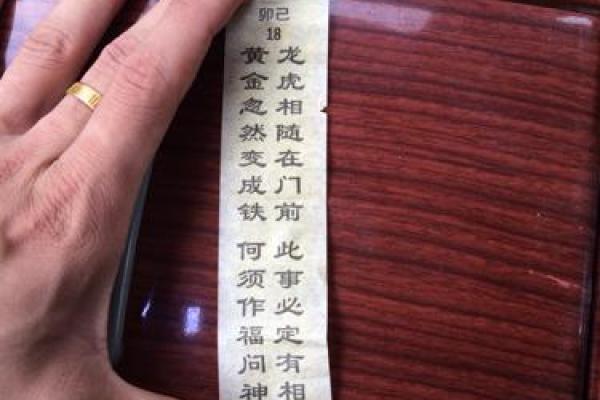 卯己
18
龙虎相随在门前
此事必定有相
黄金忽然变成铁
何须作福问神